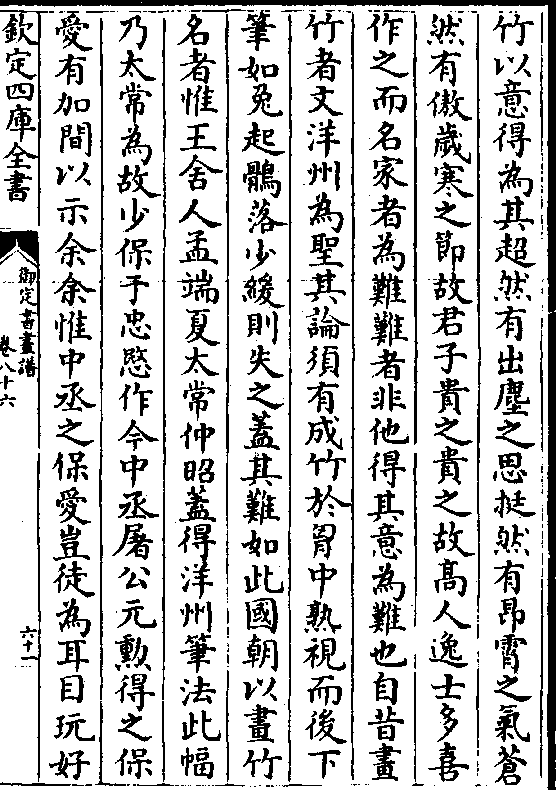 竹以意得為其超然有出塵之思挺然有昂霄之氣蒼
然有傲歲寒之節故君子貴之貴之故高人逸士多喜
作之而名家者為難難者非他得其意為難也自昔畫
竹者文洋州為聖其論須有成竹於胷中熟視而後下
筆如兔起鶻落少緩則失之蓋其難如此國朝以畫竹
名者惟王舍人孟端夏太常仲昭蓋得洋州筆法此幅
乃太常為故少保于忠愍作今中丞屠公元勲得之保
愛有加間以示余余惟中丞之保愛豈徒為耳目玩好
欽定四庫全書
御定書畫譜
卷八十六
六十一